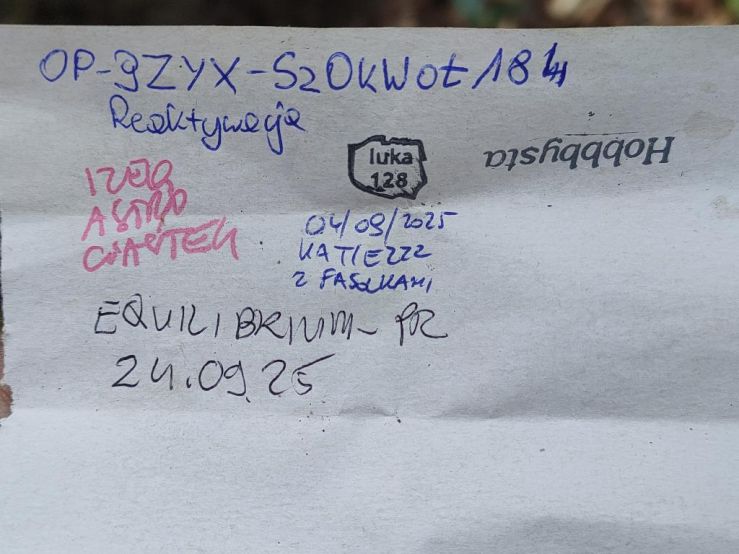 OP-9ZYX-SzOkWot 184
Reaktywacja
luka
128
Hobbysta
ASTRO
CIASTEK
04/09/2025
KATIEZZZ
Z FASOLKAMI
EQUILIBRIUM-PR
24.09.25